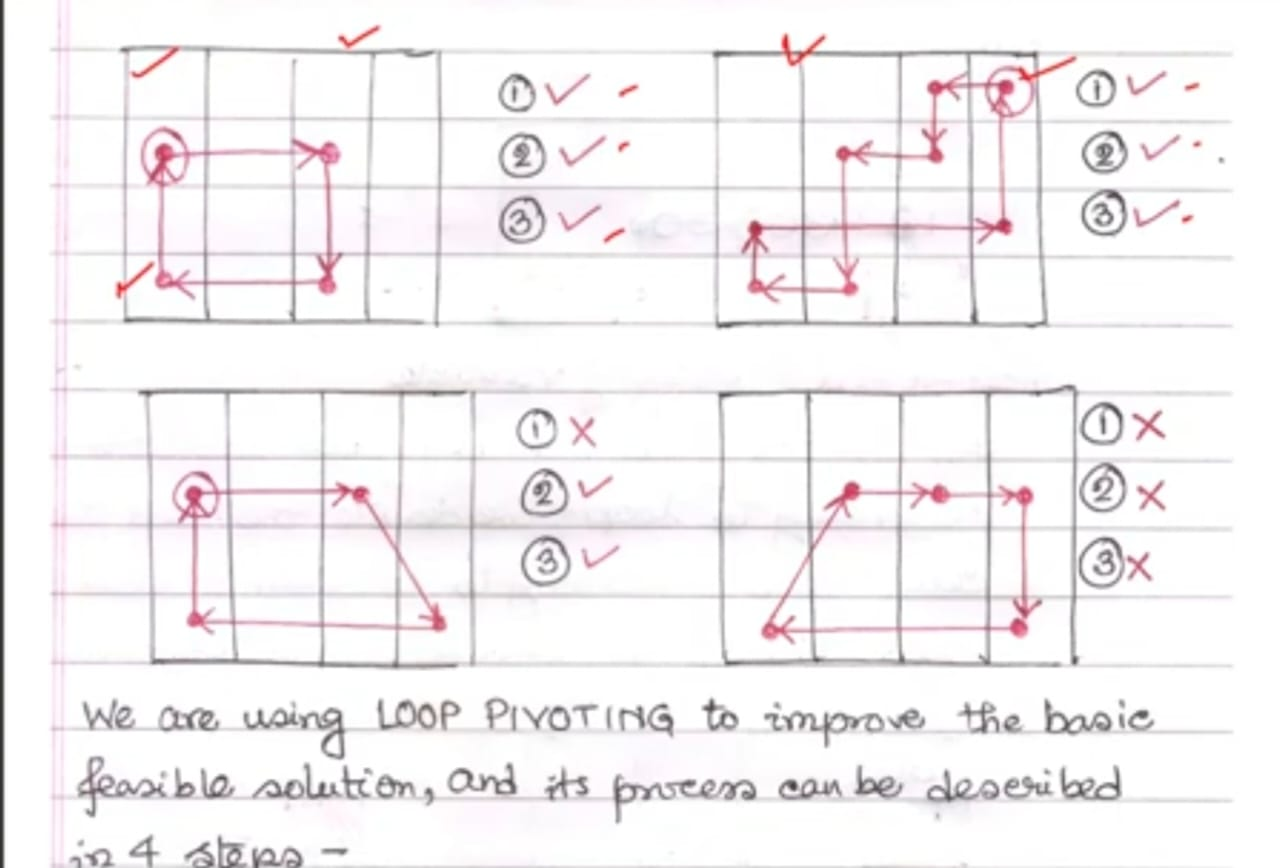 ① ✓
② ✓
③ ✓
① ✓
② ✓
③ ✓
① ×
② ✓
③ ✓
① ×
② ×
③ ×
We are using LOOP PIVOTING to improve the basic
feasible solution, and its process can be described
in 4 steps –